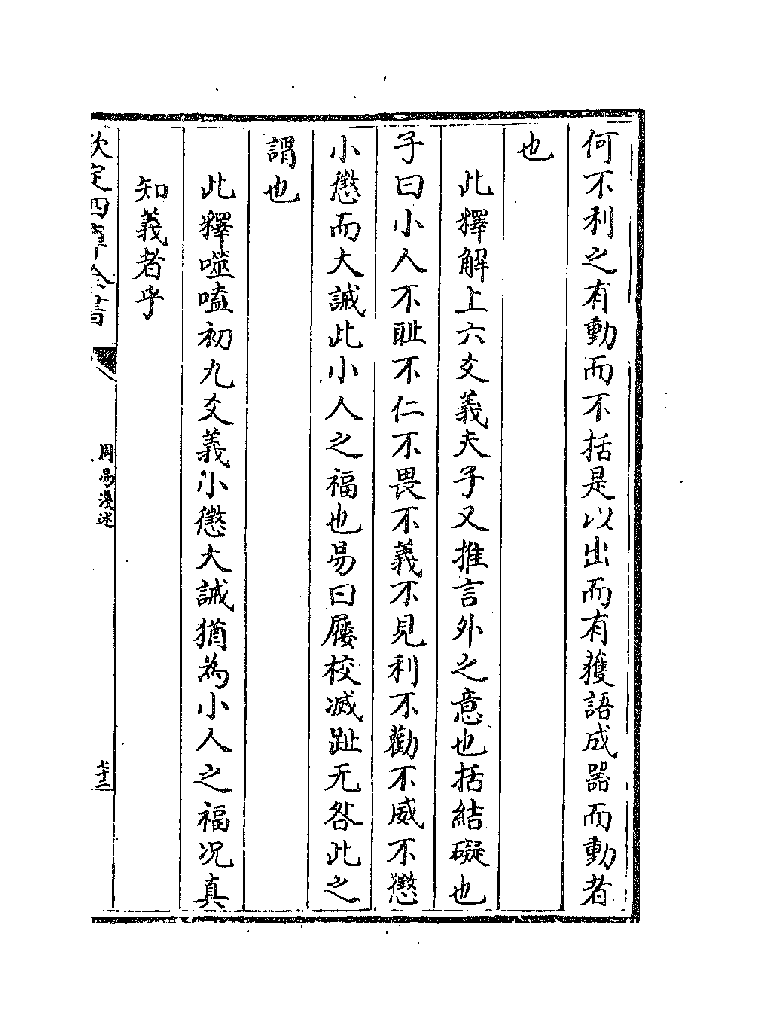 何不利之有動而不括是以出而有獲語成器而動者
也
此釋解上六爻義夫子又推言外之意也括結礙也
子曰小人不恥不仁不畏不義不見利不勸不威不懲
小懲而大誡此小人之福也易曰屨校滅趾无咎此之
謂也
此釋噬嗑初九爻義小懲大誡猶為小人之福况真
知義者乎
欽定四庫全書
周易淺述
七十二